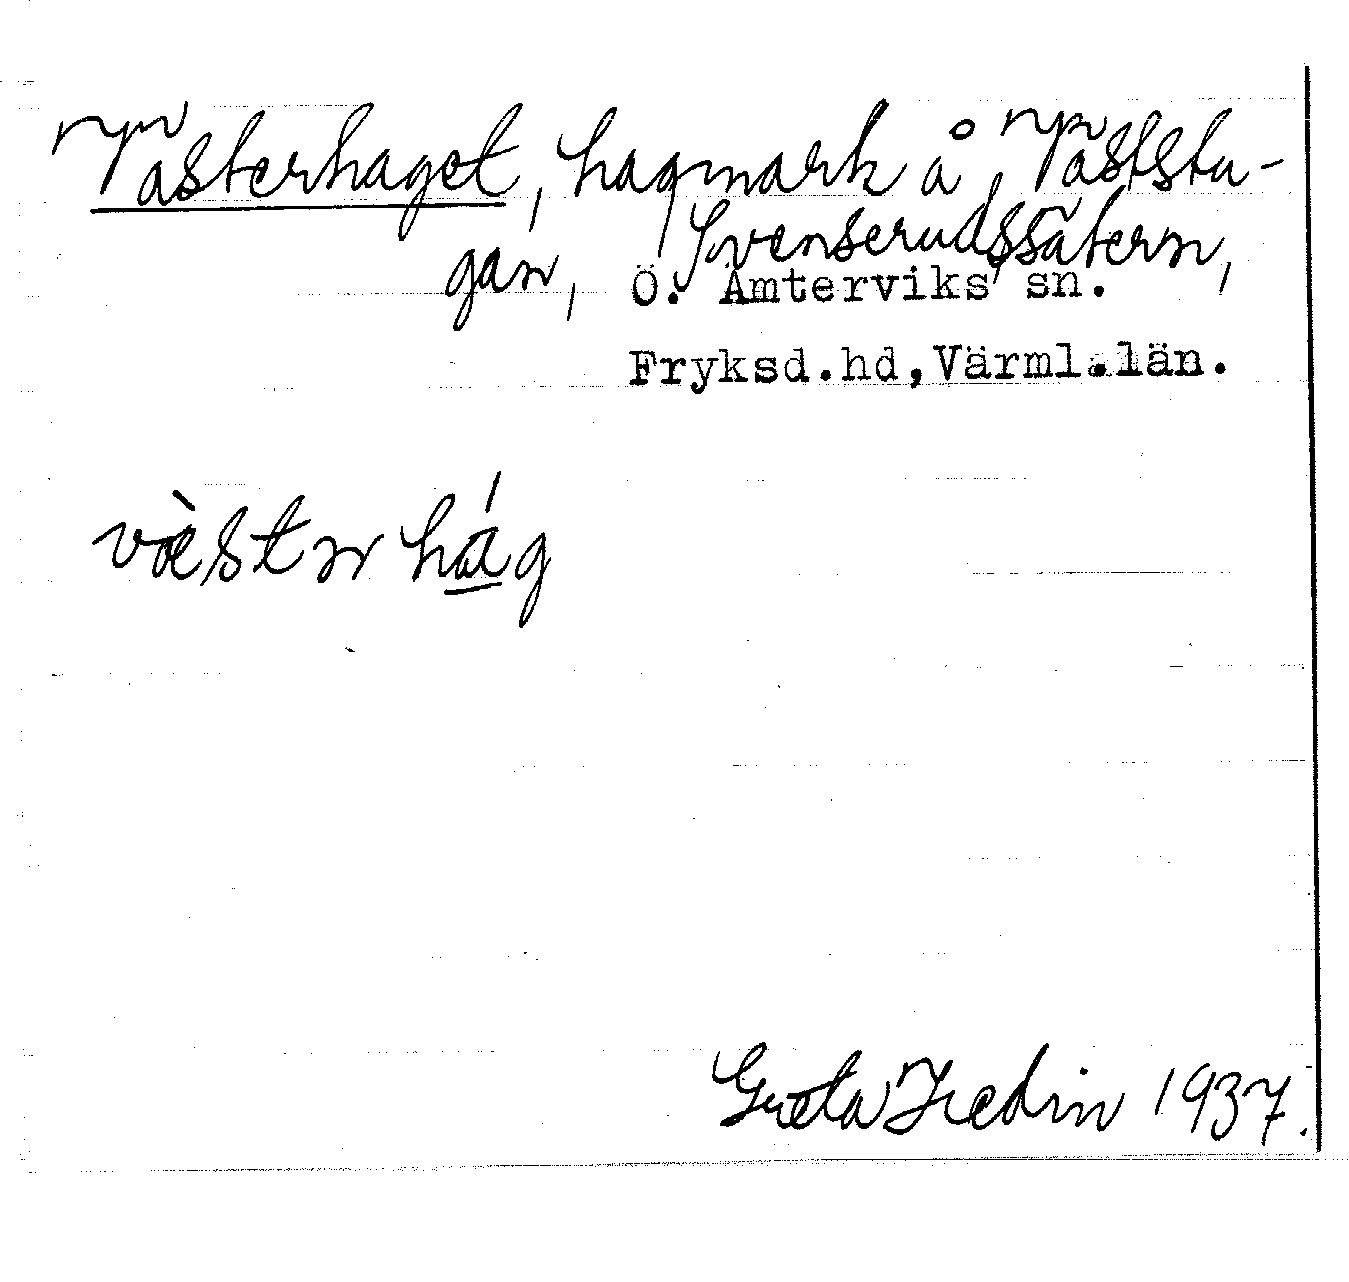 Västerhaget, hagmark å Väststu-
gan, Svenserudssätern,
Ö. Ämterviks sn.
Fryksd.hd,Värml.län.
væ̀str hág
Greta Hedin 1937.